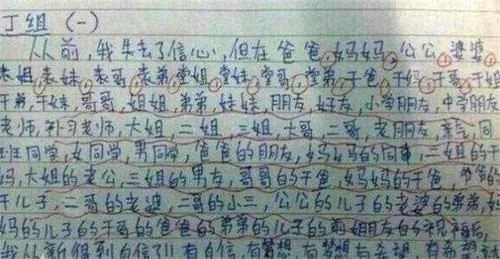 丁组 (一)
从前,我失去了信心,但在爸爸,妈妈,公公,婆婆
表姐,表妹,表哥,表弟,堂姐,堂妹,堂哥,堂弟,干爸,干妈,干哥,干姐
干弟,干妹,哥哥,姐姐,弟弟,妹妹,朋友,好友,小学朋友,中学朋友
老师,补习老师,大姐,二姐,三姐,大哥,二哥,老朋友,同
班同学,女同学,男同学,爸爸的朋友,妈妈的同事,二姐的干
妈,大姐的老公,三姐的男友,哥哥的干爸,妈妈的干爸,爷爷的
干儿子,二哥的老婆,二哥的小三,公公的儿子的老婆的弟弟,妈
妈的儿子的干哥的爸爸的弟弟的儿子的前姐朋友的
我从新得到自信!!有自信,有梦想,有梦想有希望,有希望